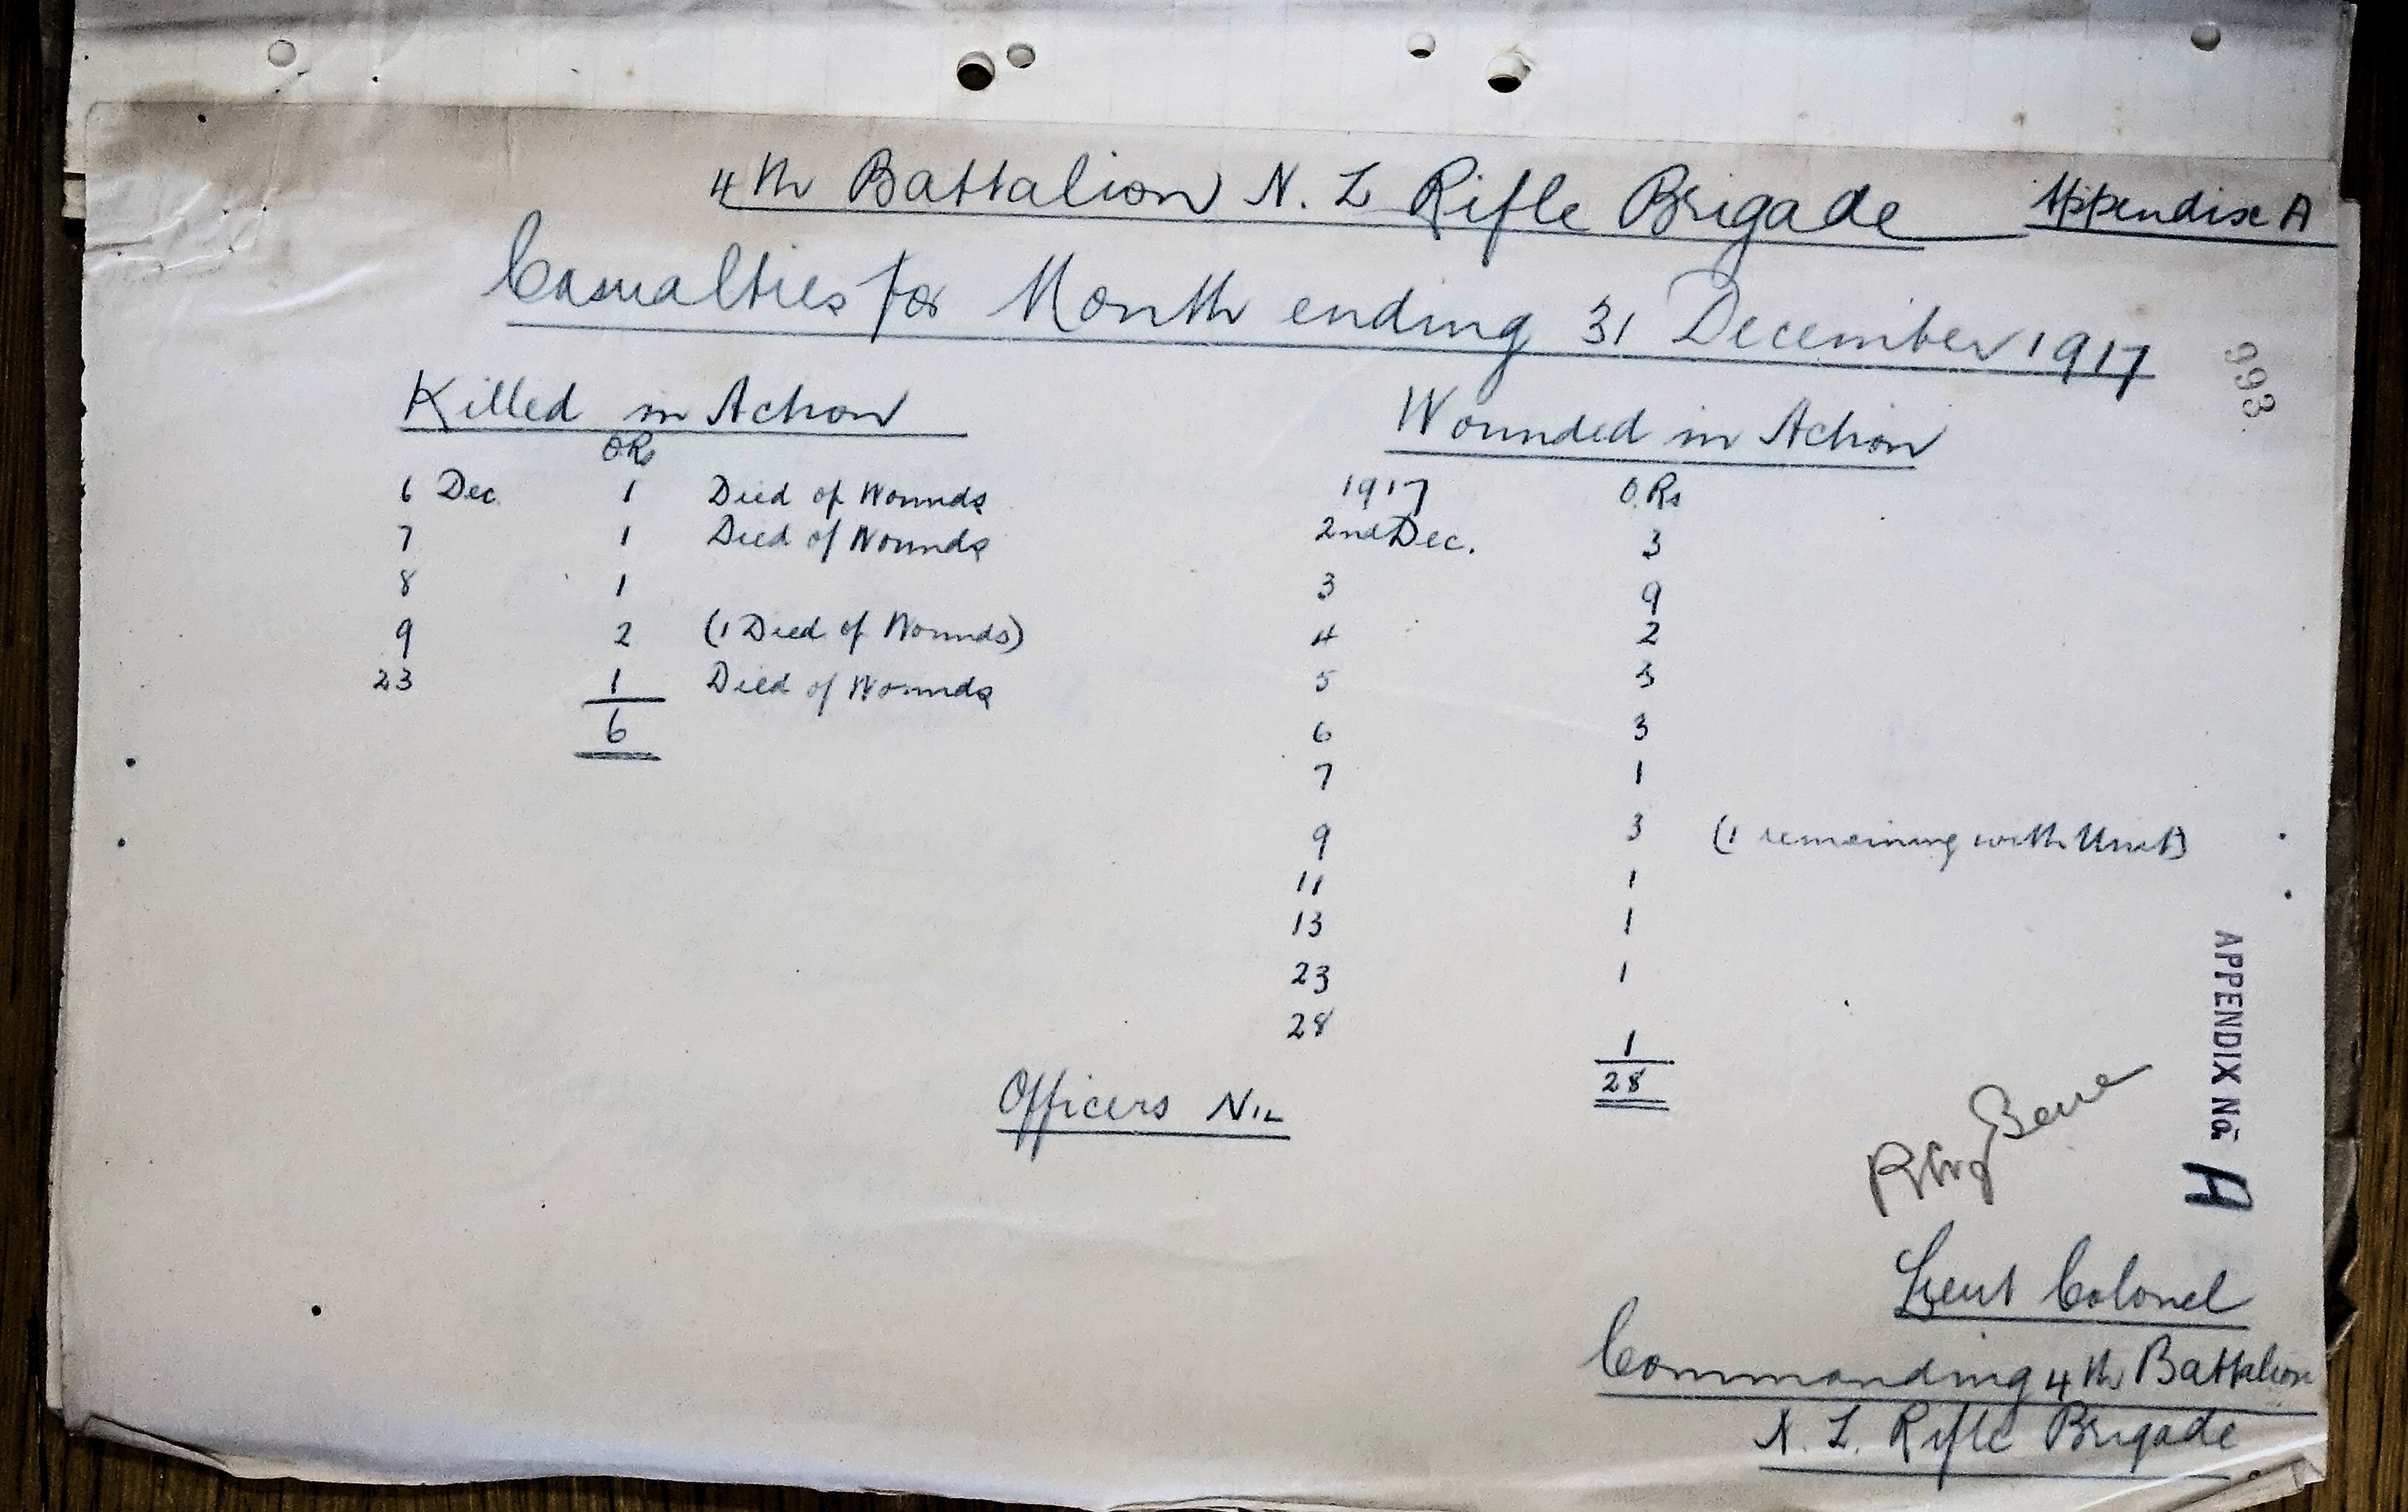 4th Battalion N. Z Rifle Brigade Appendix A
Casualties for Month ending 31 December 1917
993.
Killed in Action
ORs
6 Dec. 1 Died of Wounds
7 1 Died of Wounds
8 1
9 2 (1 Died of Wounds)
23 1 Died of Wounds
6
Wounded in Action
1917 O.Rs
2nd Dec. 3
3 9
4 2
5 3
6 3
7 1
9 3 (1 remaining with Unit)
11 1
13 1
23 1
28 1
28
Officers Nil
APPENDIX No. A
Lieut Colonel
Commanding 4th Battalion
N. Z. Rifle Brigade